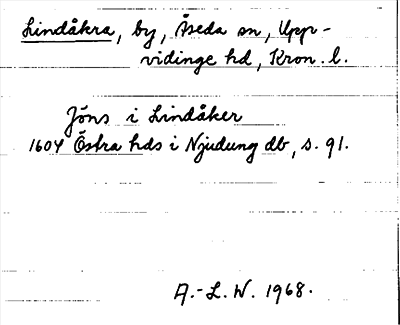 Lindåkra, by, Åseda sn, Upp-
vidinge hd, Kron. l.
Jöns i Lindåker
1604 Östra hds i Njudung db, s. 91.
A.-L. W. 1968.